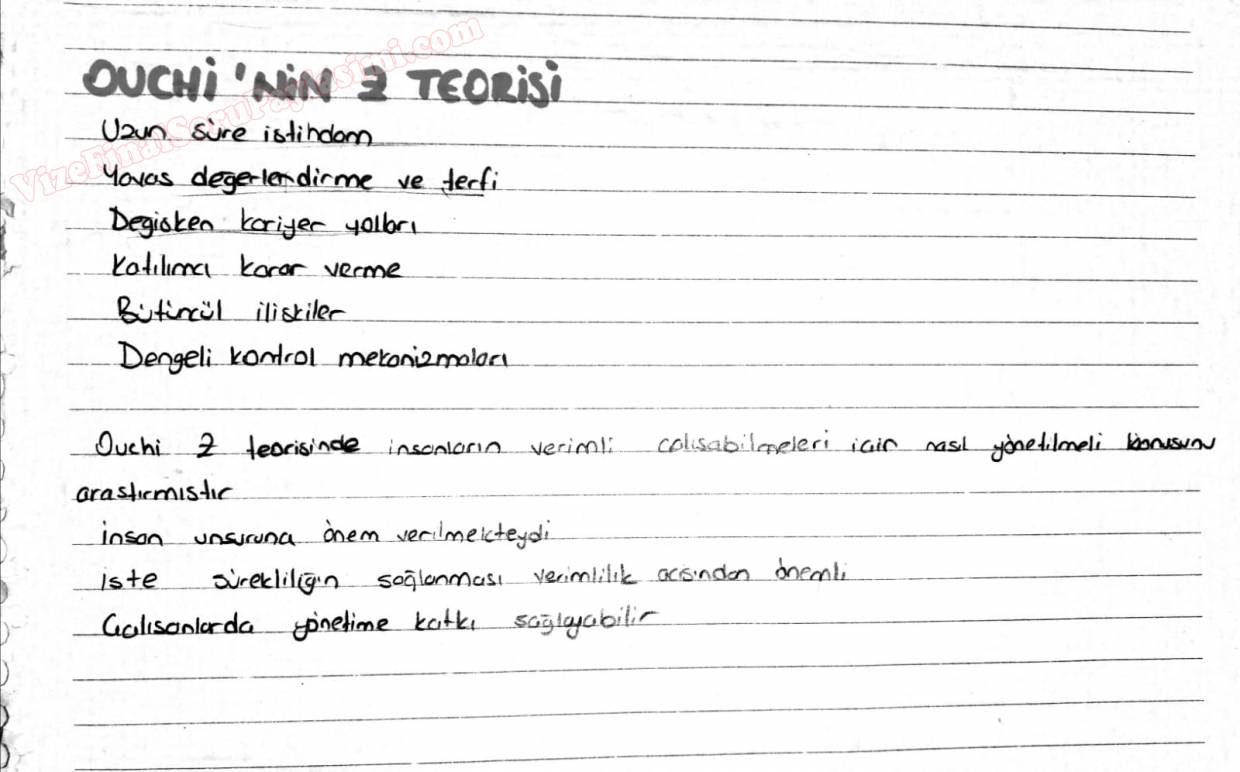 VizeFinalSoruPaylasimi.com
OUCHİ'NİN Z TEORİSİ
Uzun süre istihdam
Yavas degerlendirme ve terfi
Degisken kariyer yolları
Katılımcı karar verme
Bütüncül iliskiler
Dengeli kontrol mekanizmaları
Ouchi Z teorisinde insanların verimli calısabilmeleri icin nasıl yönetilmeli konusunu
arastırmıstır
insan unsuruna önem verilmekteydi
iste sürekliliğin sağlanması verimlilik acısından önemli
Calısanlarda yönetime katkı sağlayabilir